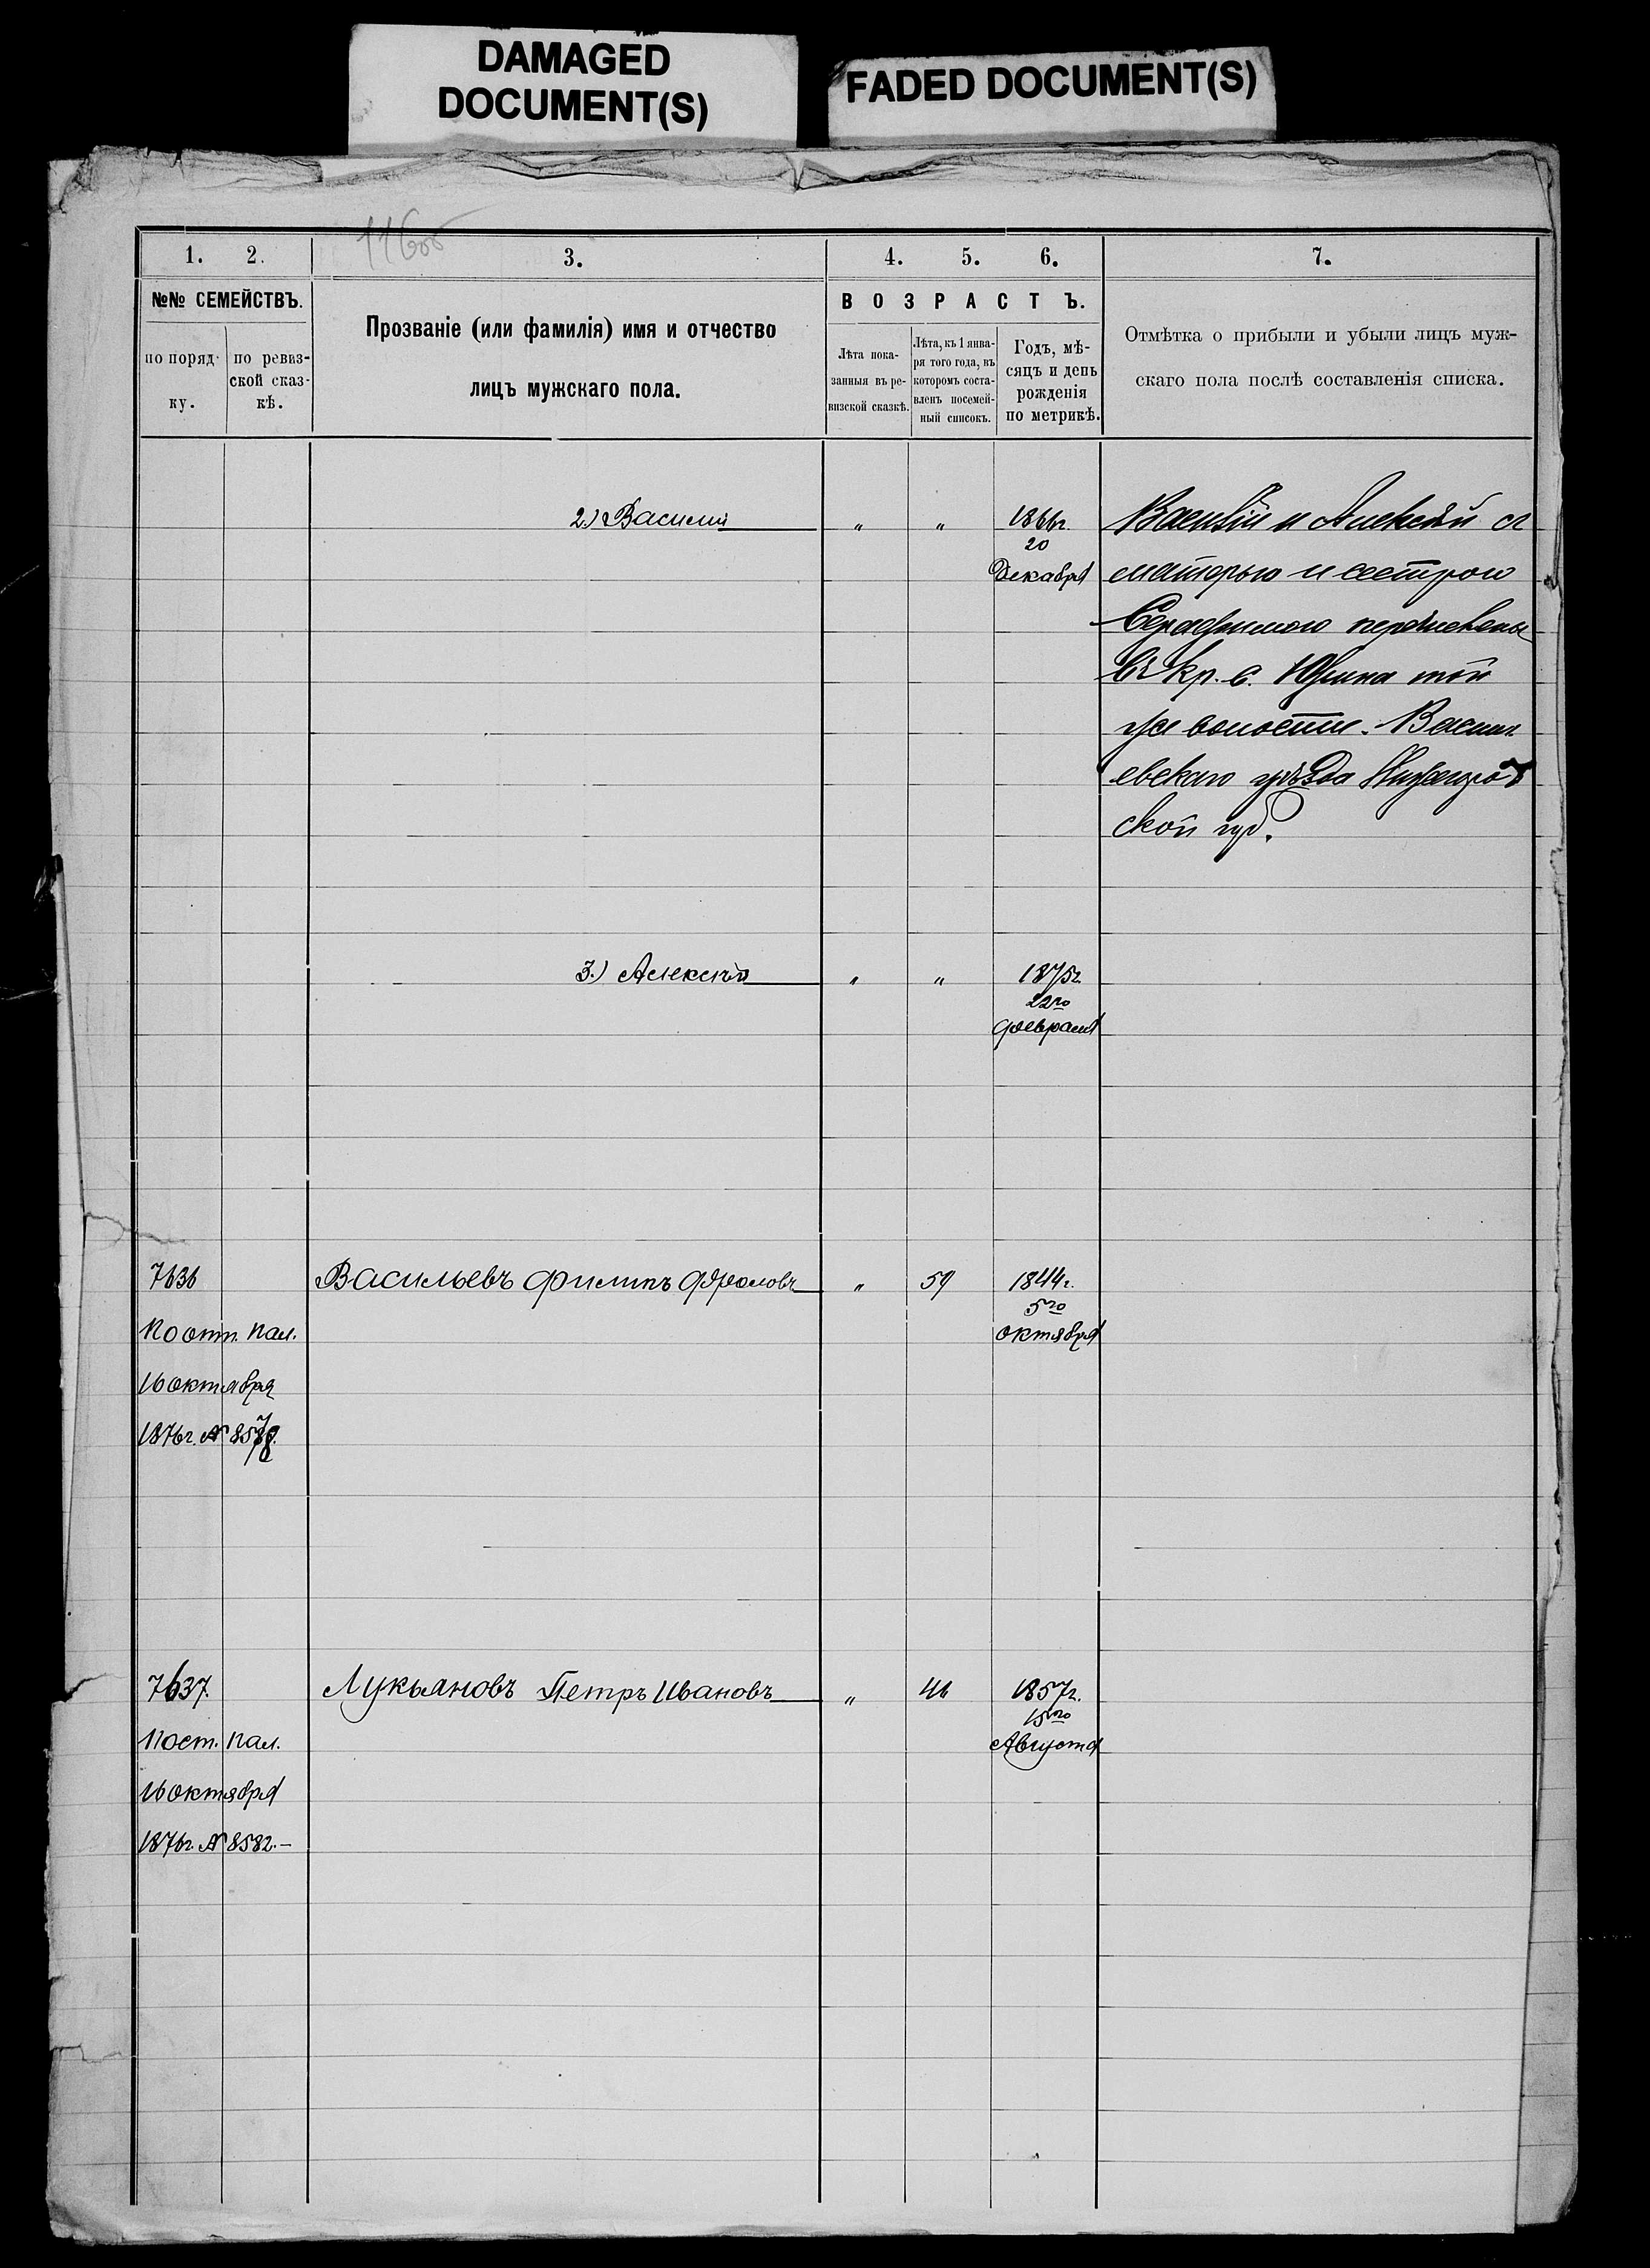 DAMAGED
DOCUMENT(S)
FADED DOCUMENT(S)
1. 2. 3. 4. 5. 6. 7.
№№ СЕМЕЙСТВЪ.
по поряд-
ку.
по ревиз-
ской сказ-
кѣ.
Прозваніе (или фамилія) имя и отчество
лицъ мужскаго пола.
ВОЗРАСТЪ.
Лѣта пока-
занныя въ ре-
визской сказкѣ.
Лѣта, къ 1 янва-
ря того года, въ
которомъ соста-
вленъ посемей-
ный списокъ.
Годъ, мѣ-
сяцъ и день
рожденія
по метрикѣ.
Отмѣтка о прибыли и убыли лицъ муж-
скаго пола послѣ составленія списка.
2.) Василій " " 1866г.
20
Декабря
Василій и Алексѣй съ
матерью и сестрою
Серафимою перечислены
въ кр. с. Юрина той
же волости. Василь
евскаго уѣзда Нижегород
ской губ.
3.) Алексѣй " " 1875г.
22го
февраля
7636 Васильевъ Филипъ Фроловъ " 59 1844г.
5го
октября
По отп. пал.
16 октября
1876г. №
7637. Лукьяновъ Петръ Ивановъ " 46 1857г.
15го
Августа
Пост. пал.
16 октября
1876г. № 8582.-